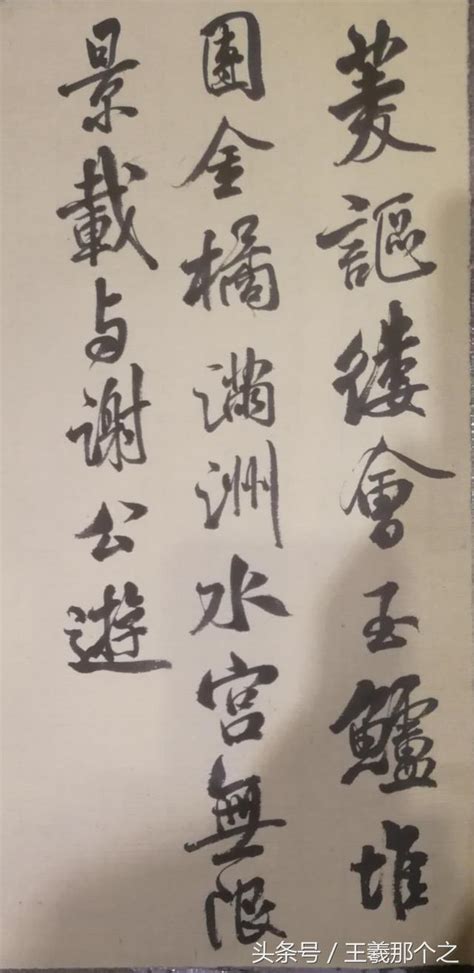 菱謳縷會玉鱸堆
團金橘滿洲水宮無限
景載与謝公遊
头条号 / 王羲那个之